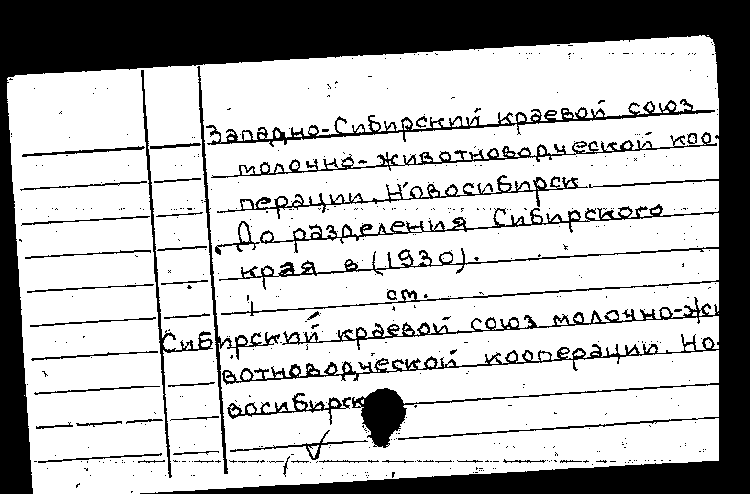 Западно-Сибирский краевой союз
молочно-животноводческой коо-
перации. Новосибирск.
До разделения Сибирского
края в (1930).
см.
Сибирский краевой союз молочно-жи
вотноводческой кооперации. Но-
восибирск.